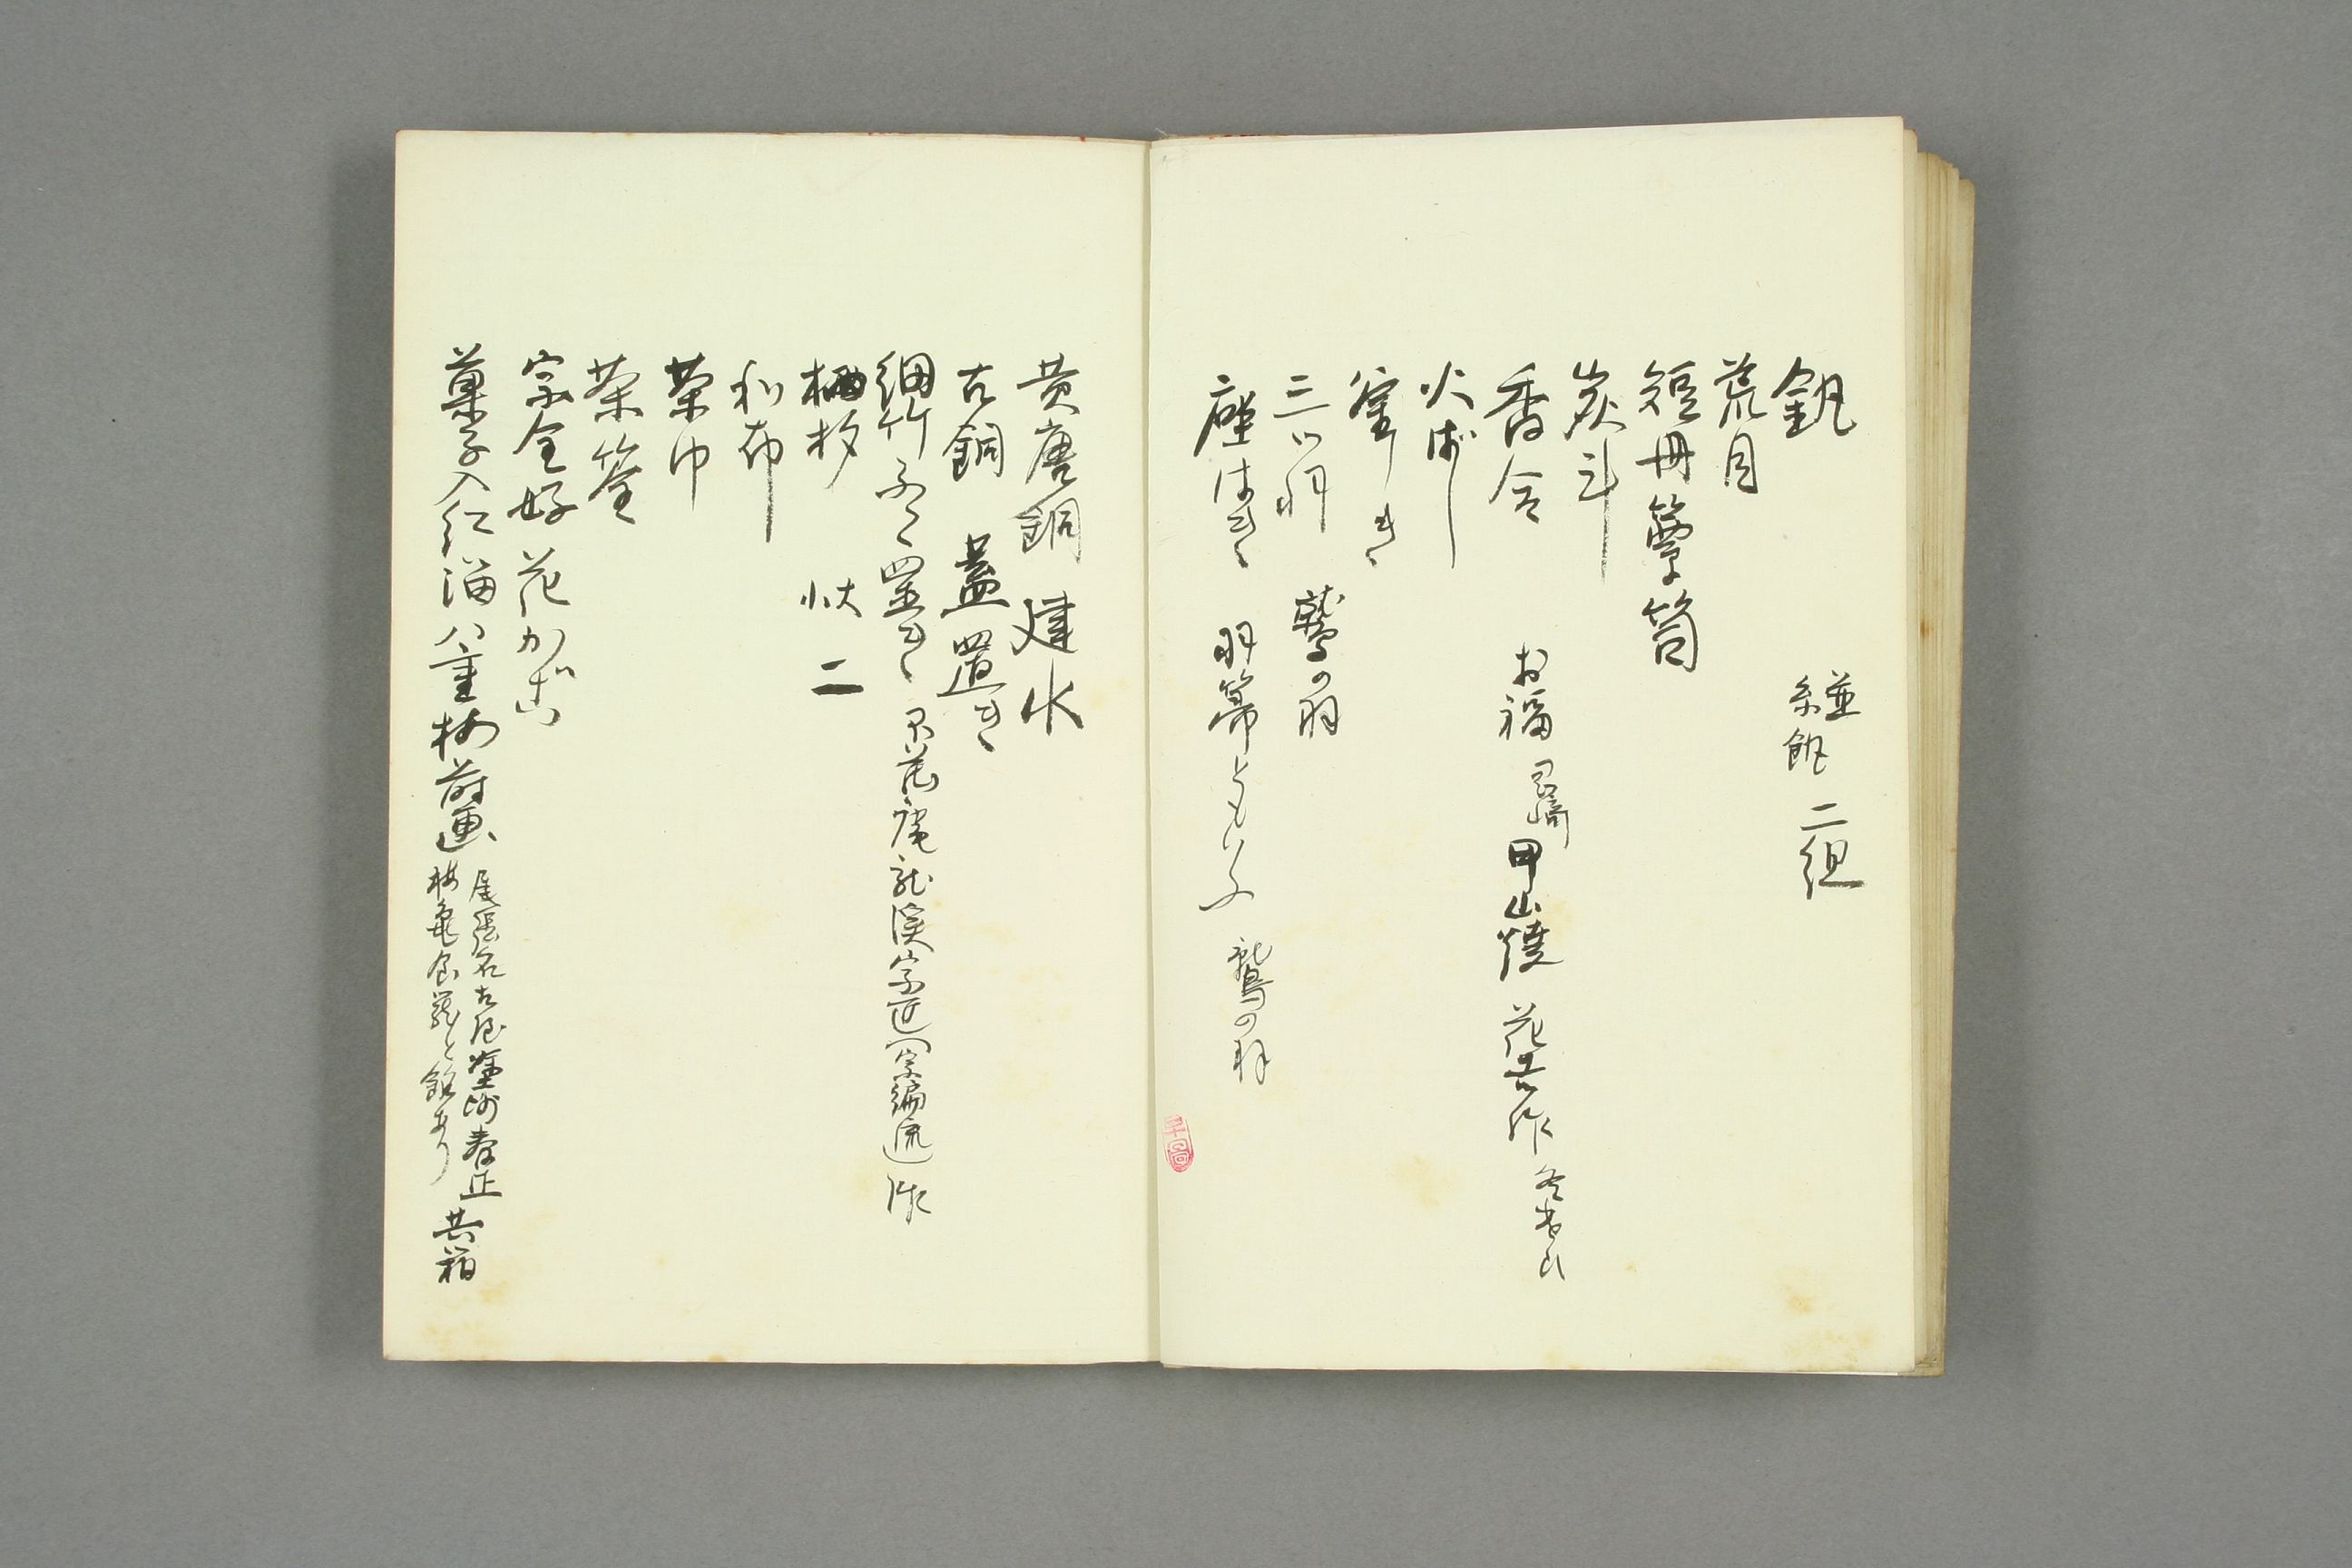 釻 鎹釻 二組
荒目
短冊簞笥
炭斗
香合 お福 尼崎 甲山焼 花巷作
火ばし
釜しき
三ツ羽 鷲の羽
座はき 羽箒ともいふ 鷲の羽
黄唐銅 建水
古銅 蓋置き
細竹ふた置き 不蔵庵龍渓宗匠(宗徧流)作
柄杓 状 二
和布
茶巾
茶筌
宗全好 花かご
菓子入 紅溜 八重梅蒔画 尾張名古屋塗師春正 共箱
梅亀食籠と銘あり